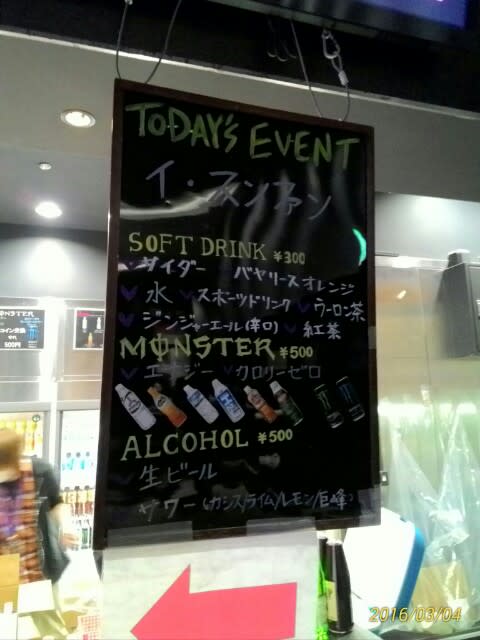 TODAY'S EVENT
イ・スンファン
SOFT DRINK ¥300
サイダー バヤリースオレンジ
水 スポーツドリンク ウーロン茶
ジンジャーエール(辛口) 紅茶
MONSTER ¥500
エナジー クロリーゼロ
ALCOHOL ¥500
生ビール
サワー(カシス/ライム/レモン/巨峰)
MONSTER
コイン交換
500円
2016/03/04